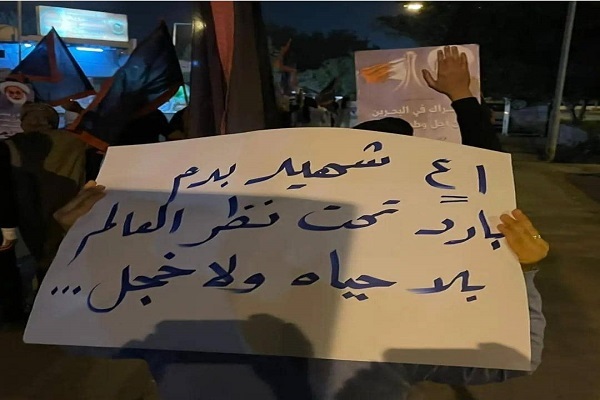 ٤١ شهيد بدم
بارد تحت نظر العالم
بلا حياه ولا خجل ...
في البحرين